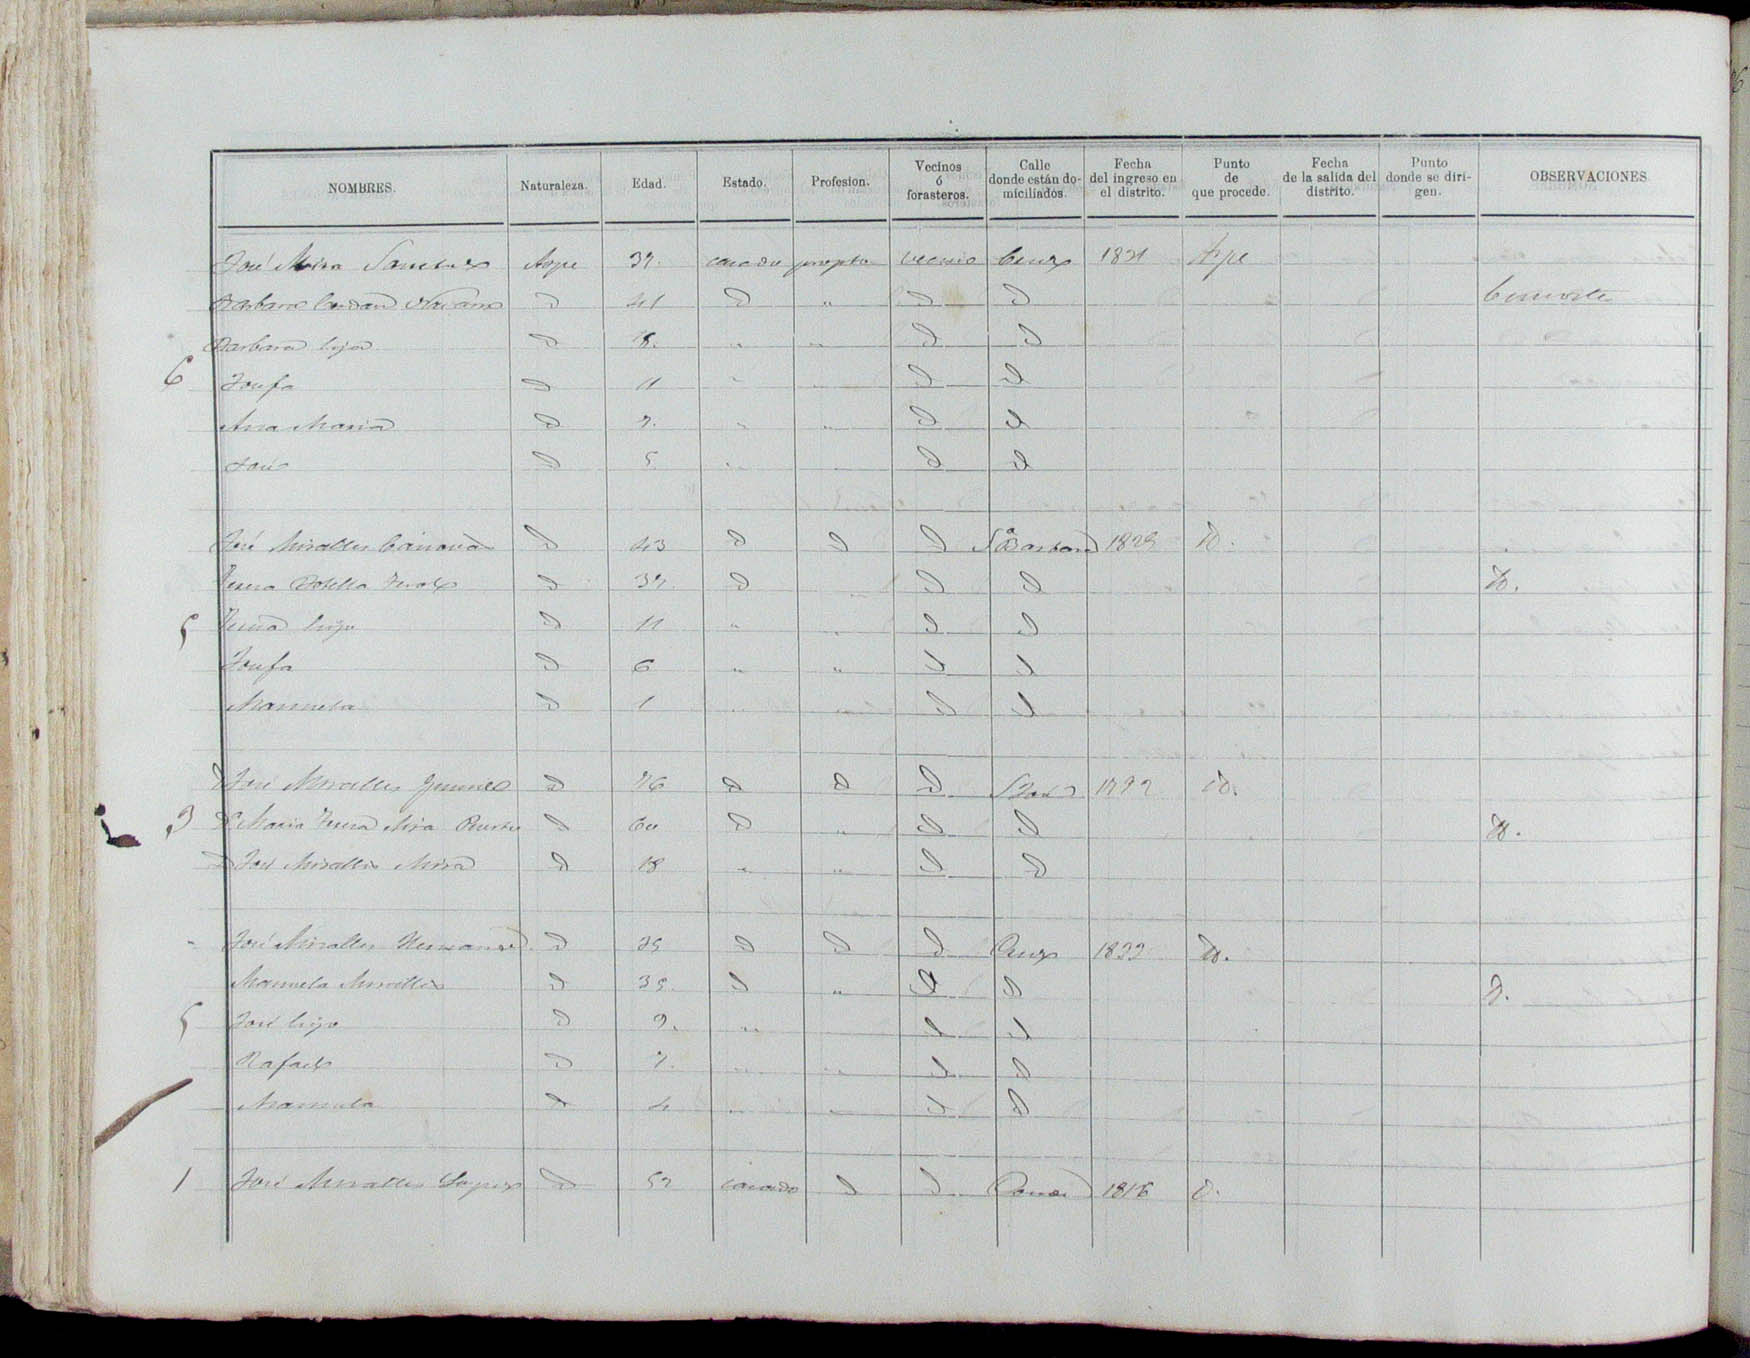 NOMBRES. Naturaleza. Edad. Estado. Profesion. Vecinos ó forasteros. Calle donde están domiciliados. Fecha del ingreso en el distrito. Punto de que procede. Fecha de la salida del distrito. Punto donde se dirigen. OBSERVACIONES
José Mira Sanchez Aspe 37. casado vecino Cruz 1821 Aspe
Barbara Navarro D 41 D " D D Consorte
Barbara hija D 18. " " D D
6 Josefa D 11 " " D D
Ana Maria D 7. " " D D
José D 5 " " D D
José Miralles Cánovas D 43 D D D Sª Barbara 1825 D.
Teresa Botella D 37. D D D D.
5 Teresa hija D 11 " " D D
Josefa D 6 " " D D
Manuela D 1 " " D D
José Miralles D 76 D D D S José 1792 D.
3 Maria Teresa Mira D 60 D " D D D.
José Miralles Mira D 18 " " D D
José Miralles D 35 D D D Cruz 1833 D.
Manuela Miralles D 35. D " D D D.
5 José hijo D 9. " D D
Rafael D 7. " " D D
Manuela D 4 " " D D
1 José Miralles Lopez D 52 casado D D 1816 D.